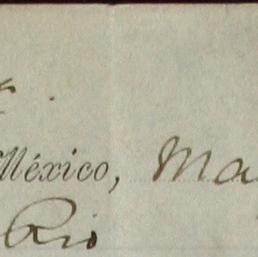 México, May
Rio